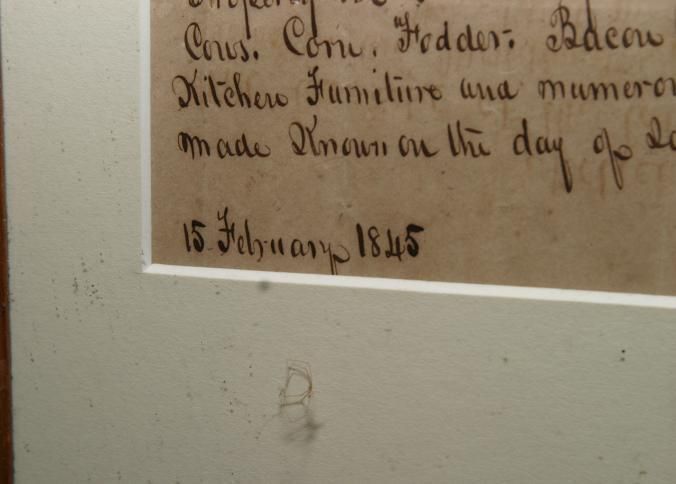 Cows. Corn. Fodder. Bacon
Kitchen Furniture and numerou
made Known on the day of Sa
15 February 1845